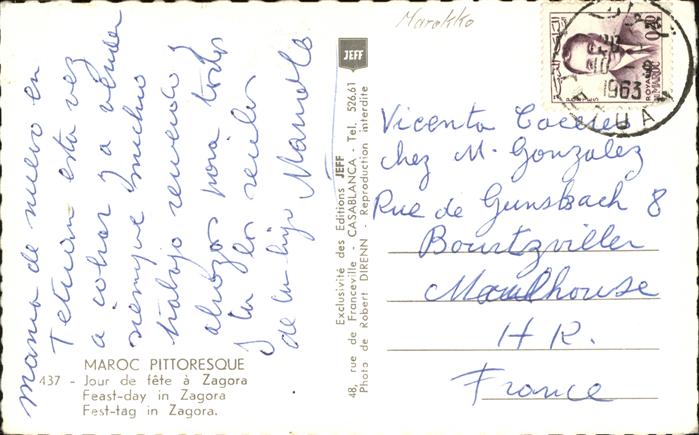 Marokko
mama de nuevo en
Tetuan esta vez
a cobrar y a vender
siempre mucho
trabajo recuerdos y
abrazos para todos
y tu los recibes
de tu hijo Manolo
JEFF
Exclusivité des Editions JEFF
48, rue de Franceville - CASABLANCA - Tel. 526.61
Photo de Robert DIRENN - Reproduction interdite
MAROC PITTORESQUE
437 - Jour de fête à Zagora
Feast-day in Zagora
Fest-tag in Zagora.
0,20
ROYAUME
MAROC
POSTES
1963
Vicenta Caceres
chez M. Gonzalez
Rue de Gunsbach 8
Bourtzviller
Moulhouse
H R.
France